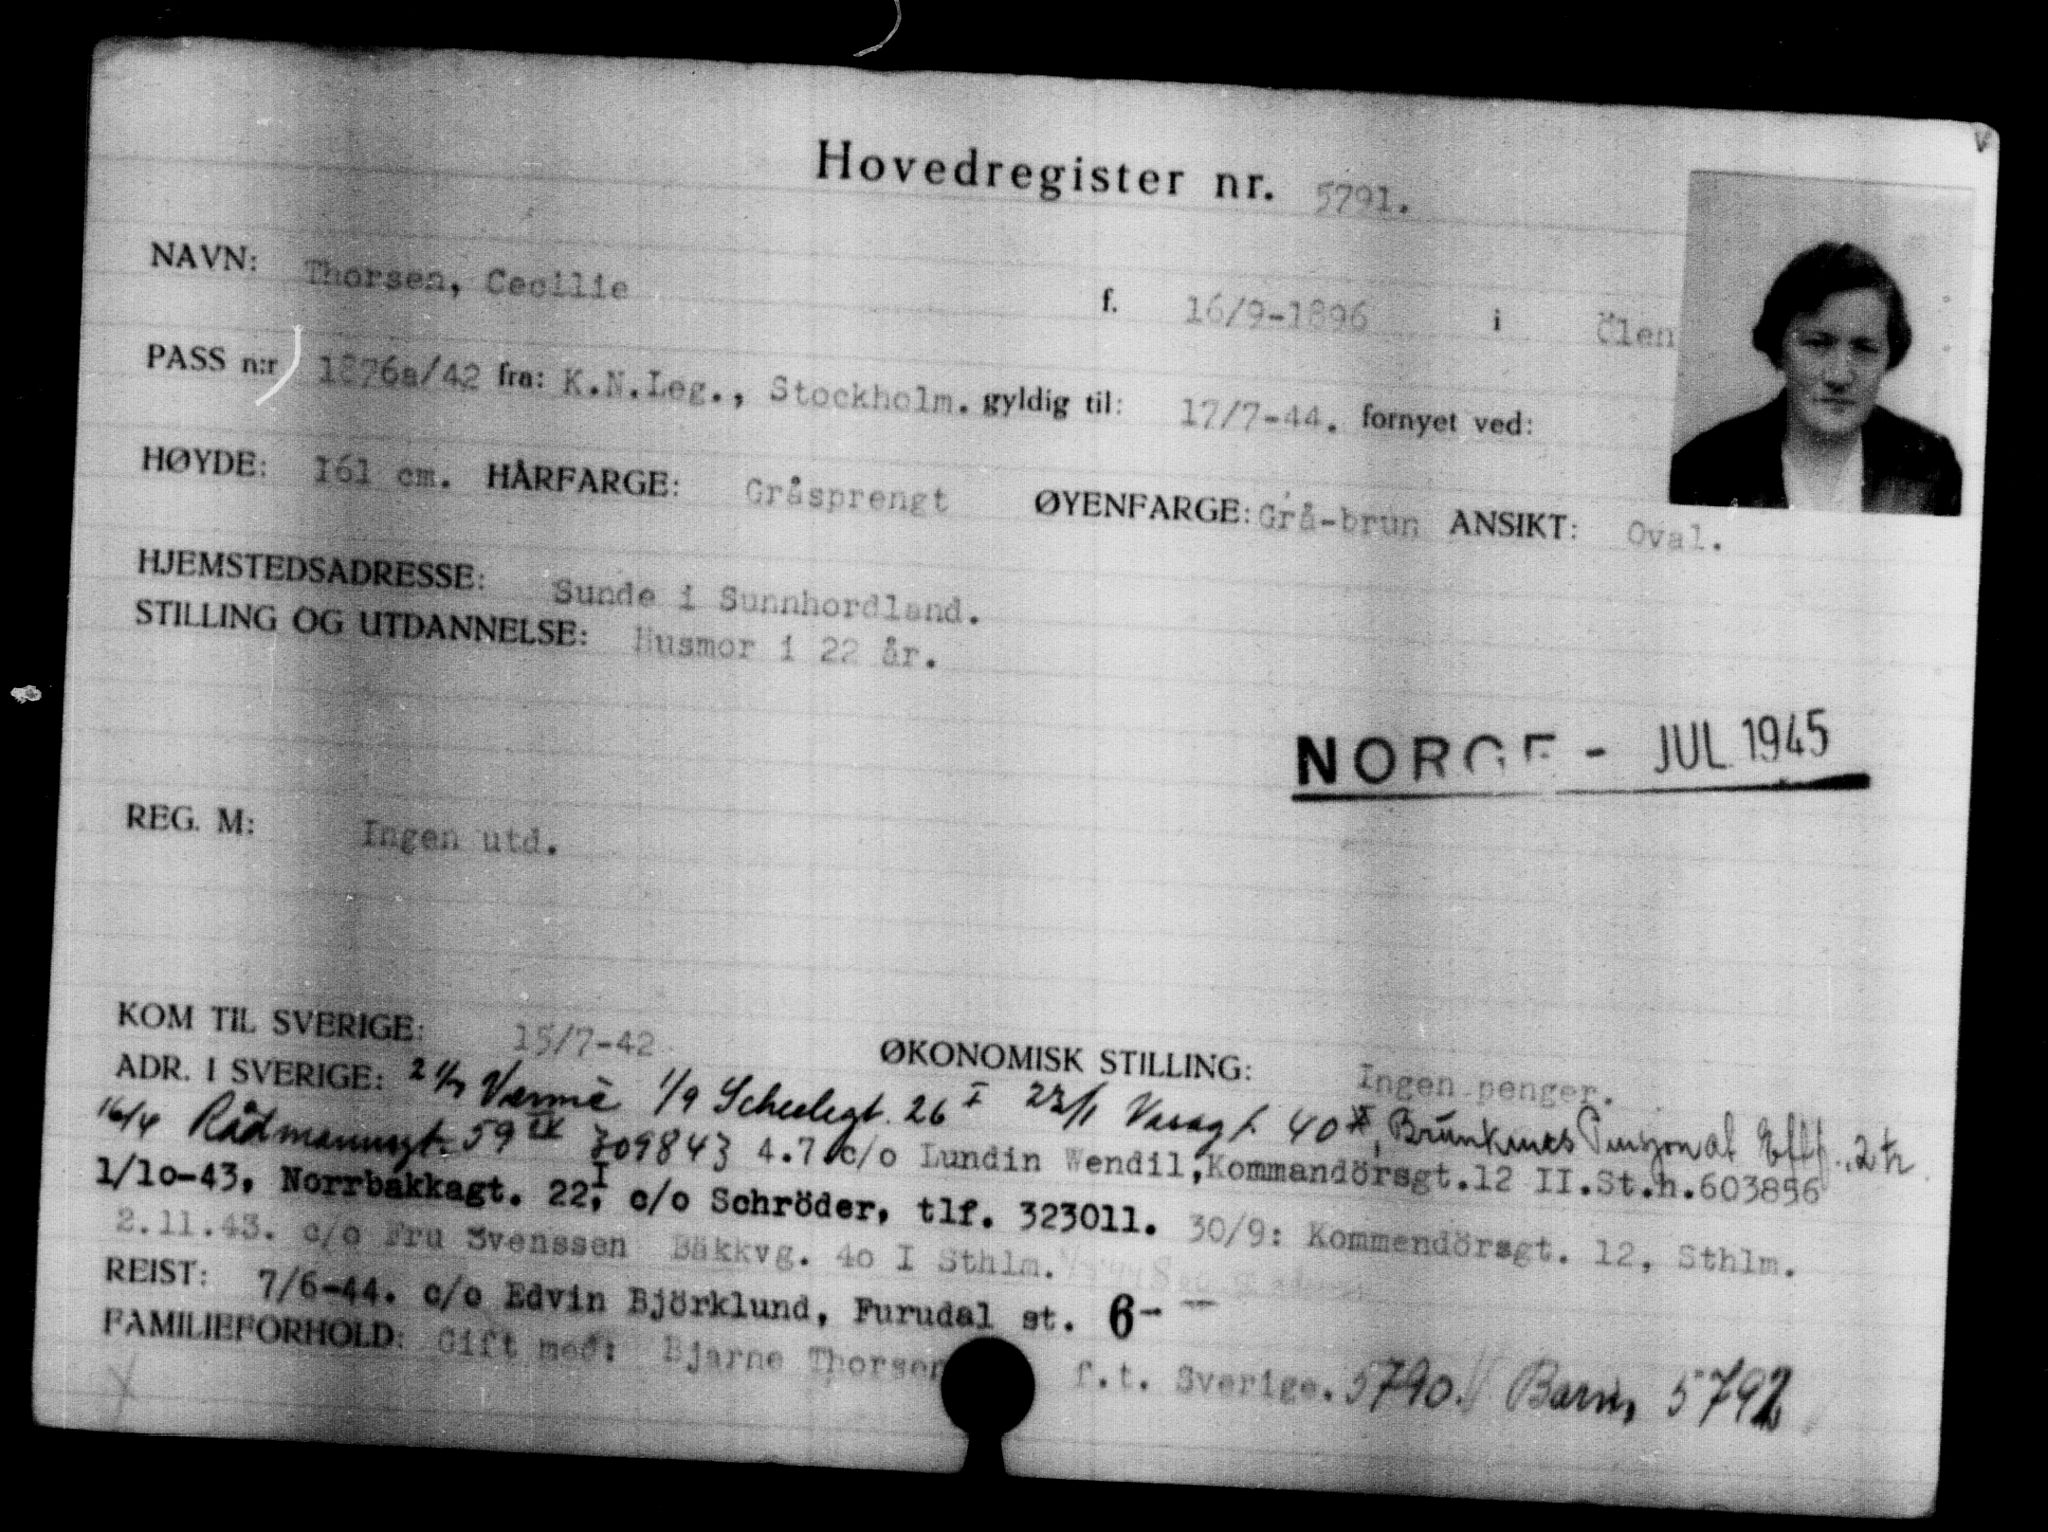 Hovedregister nr. 5791.
NAVN: Thorsen, Cecilie f. 16/9-1896 i Ölen
PASS n:r 1876a/42 fra: K.N.Leg., Stockholm. gyldig til: 17/7-44. fornyet ved:
HØYDE: I61 cm. HÅRFARGE: Gråsprengt ØYENFARGE: Grå-brun ANSIKT: Oval.
HJEMSTEDSADRESSE: Sunde i Sunnhordland.
STILLING OG UTDANNELSE: Husmor i 22 år.
NORGE - JUL. 1945
REG. M: Ingen utd.
KOM TIL SVERIGE: 15/7-42 ØKONOMISK STILLING: Ingen penger.
ADR. I SVERIGE: 1/9 Scheelegt. 26 I Vasagt. 40
16/4 Rådmannsgt. 59 309843 4.7 c/o Lundin Wendil, Kommandörsgt.12 II.St.h.603856
1/10-43, Norrbakkagt. 22, I c/o Schröder, tlf. 323011. 30/9: Kommendörsgt. 12, Sthlm.
2.11.43. c/o Fru Svenssen Bäkkvg. 40 I Sthlm.
REIST: 7/6-44. c/o Edvin Björklund, Furudal st. 6-
FAMILIEFORHOLD: Gift med: Bjarne Thorsen f.t. Sverige. 5790. Barn, 5792